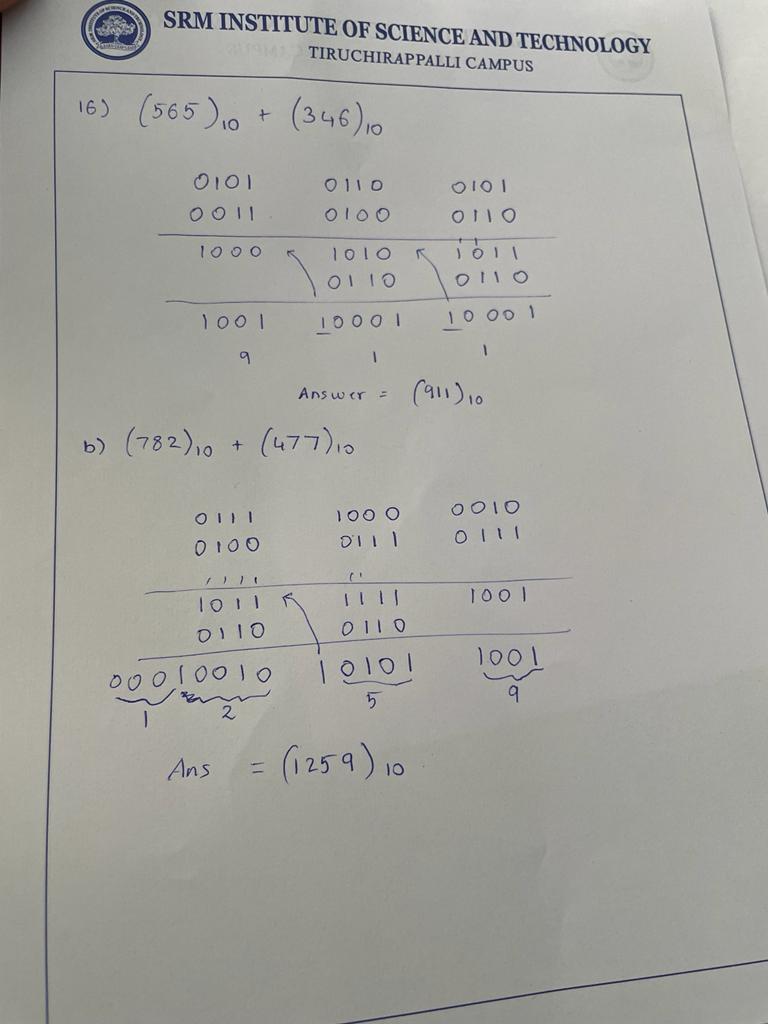 SRM INSTITUTE OF SCIENCE AND TECHNOLOGY
TIRUCHIRAPPALLI CAMPUS
16) (565)10 + (346)10
0101 0110 0101
0011 0100 0110
1000 1010 1011
0110 0110
1001 10001 10001
9 1 1
Answer = (911)10
b) (782)10 + (477)10
0111 1000 0010
0100 0111 0111
1011 1111 1001
0110 0110
00010010 10101 1001
1 2 5 9
Ans = (1259)10